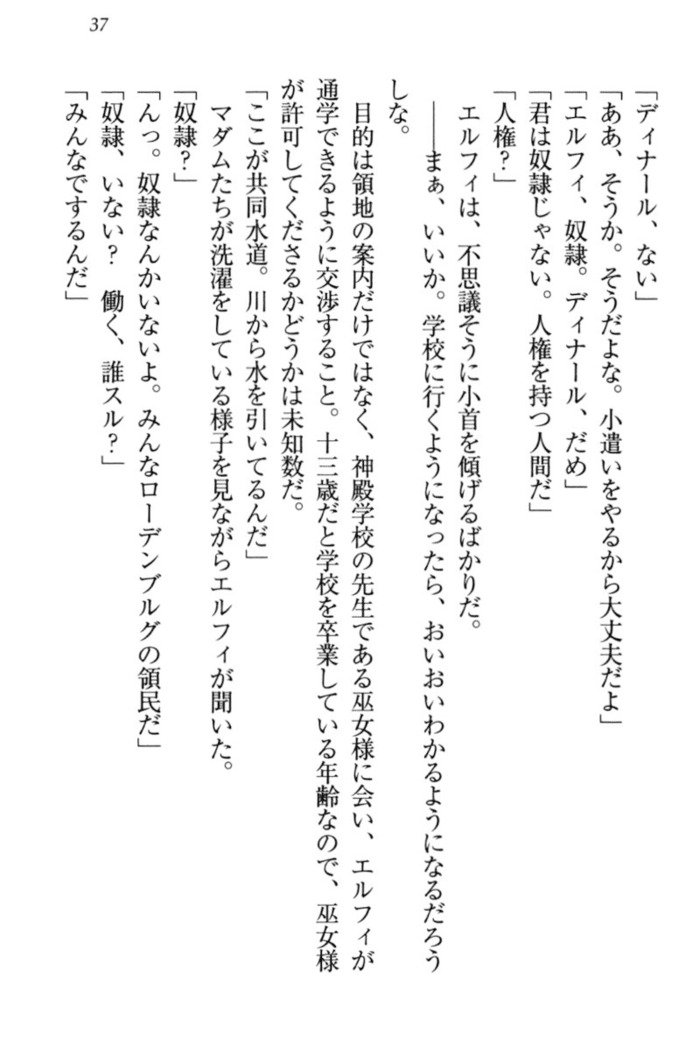 37
「ディナール、ない」
「ああ、そうか。そうだよな。小遣いをやるから大丈夫だよ」
「エルフィ、奴隷。ディナール、だめ」
「君は奴隷じゃない。人権を持つ人間だ」
「人権？」
エルフィは、不思議そうに小首を傾げるばかりだ。
――まぁ、いいか。学校に行くようになったら、おいおいわかるようになるだろう
しな。
目的は領地の案内だけではなく、神殿学校の先生である巫女様に会い、エルフィが
通学できるように交渉すること。十三歳だと学校を卒業している年齢なので、巫女様
が許可してくださるかどうかは未知数だ。
「ここが共同水道。川から水を引いてるんだ」
マダムたちが洗濯をしている様子を見ながらエルフィが聞いた。
「奴隷？」
「んっ。奴隷なんかいないよ。みんなローデンブルグの領民だ」
「奴隷、いない？　働く、誰スル？」
「みんなでするんだ」